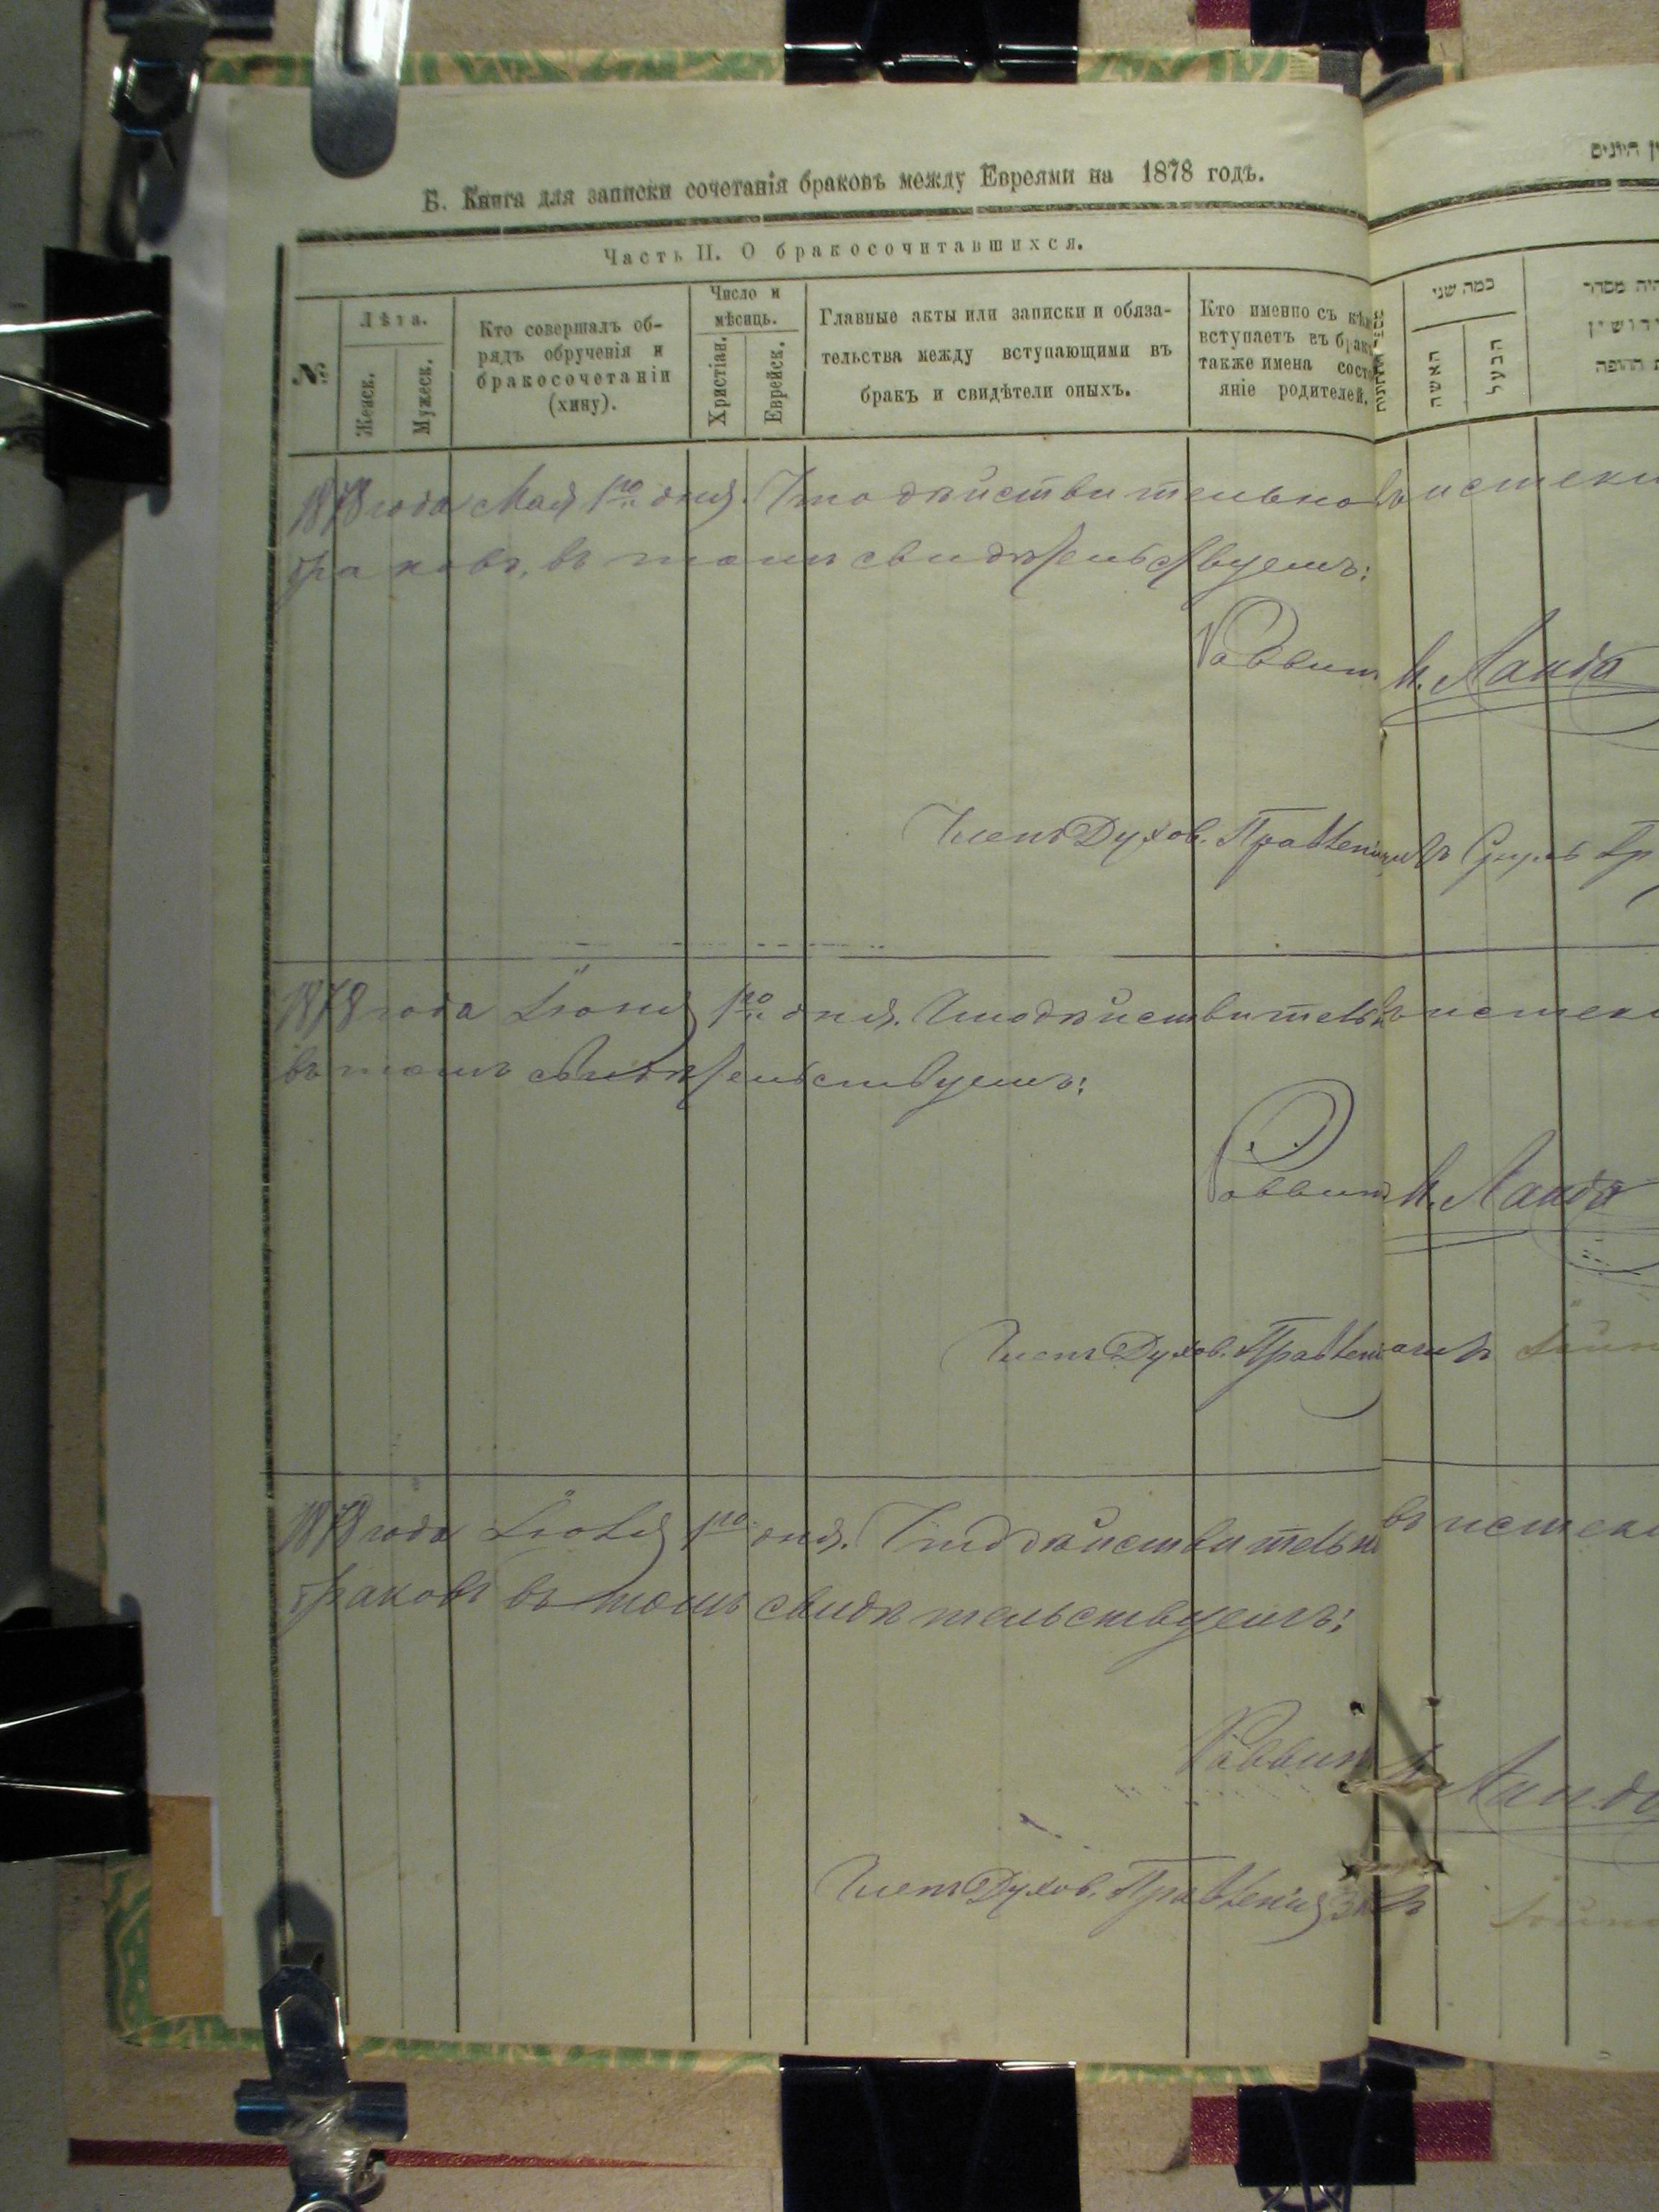 Б. Книга для записки сочетанія браковъ между Евреями на 1878 годъ.
Часть II. О бракосочитавшихся.
№
Лѣта.
Женск.
Мужеск.
Кто совершалъ об-
рядъ обрученія и
бракосочетаніи
(хину).
Число и
мѣсяцъ.
Христіан.
Еврейск.
Главные акты или записки и обяза-
тельства между вступающими въ
бракъ и свидѣтели оныхъ.
Кто именно съ кѣмъ
вступаетъ въ бракъ
также имена состо
яніе родителей.
כמה שני
האשה
הבעל
היה מסדר
1878 года Мая 1го дня. Что дѣйствительно въ истек
браковъ, въ томъ свидѣтельствуемъ:
Раввинъ И. Ландо
Членъ Духов. Правленія
1878 года Іюня 1го дня. Что дѣйствительн въ истек
въ томъ свидѣтельствуемъ:
Раввинъ И. Ландо
Членъ Духов. Правленія
1878 года Іюля 1го дня. Что дѣйствительн въ истек
браковъ въ томъ свидѣтельствуемъ:
Раввинъ И. Ландо
Членъ Духов. Правленія